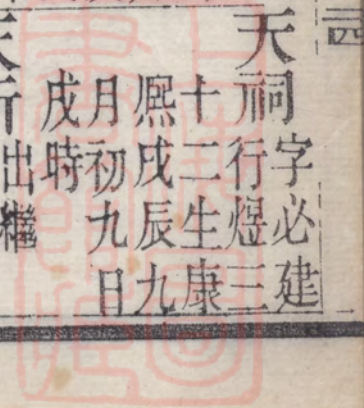 四
天祠
字必建
行煜三
十二生康
熙戊辰九
月初九日
戌時
出繼